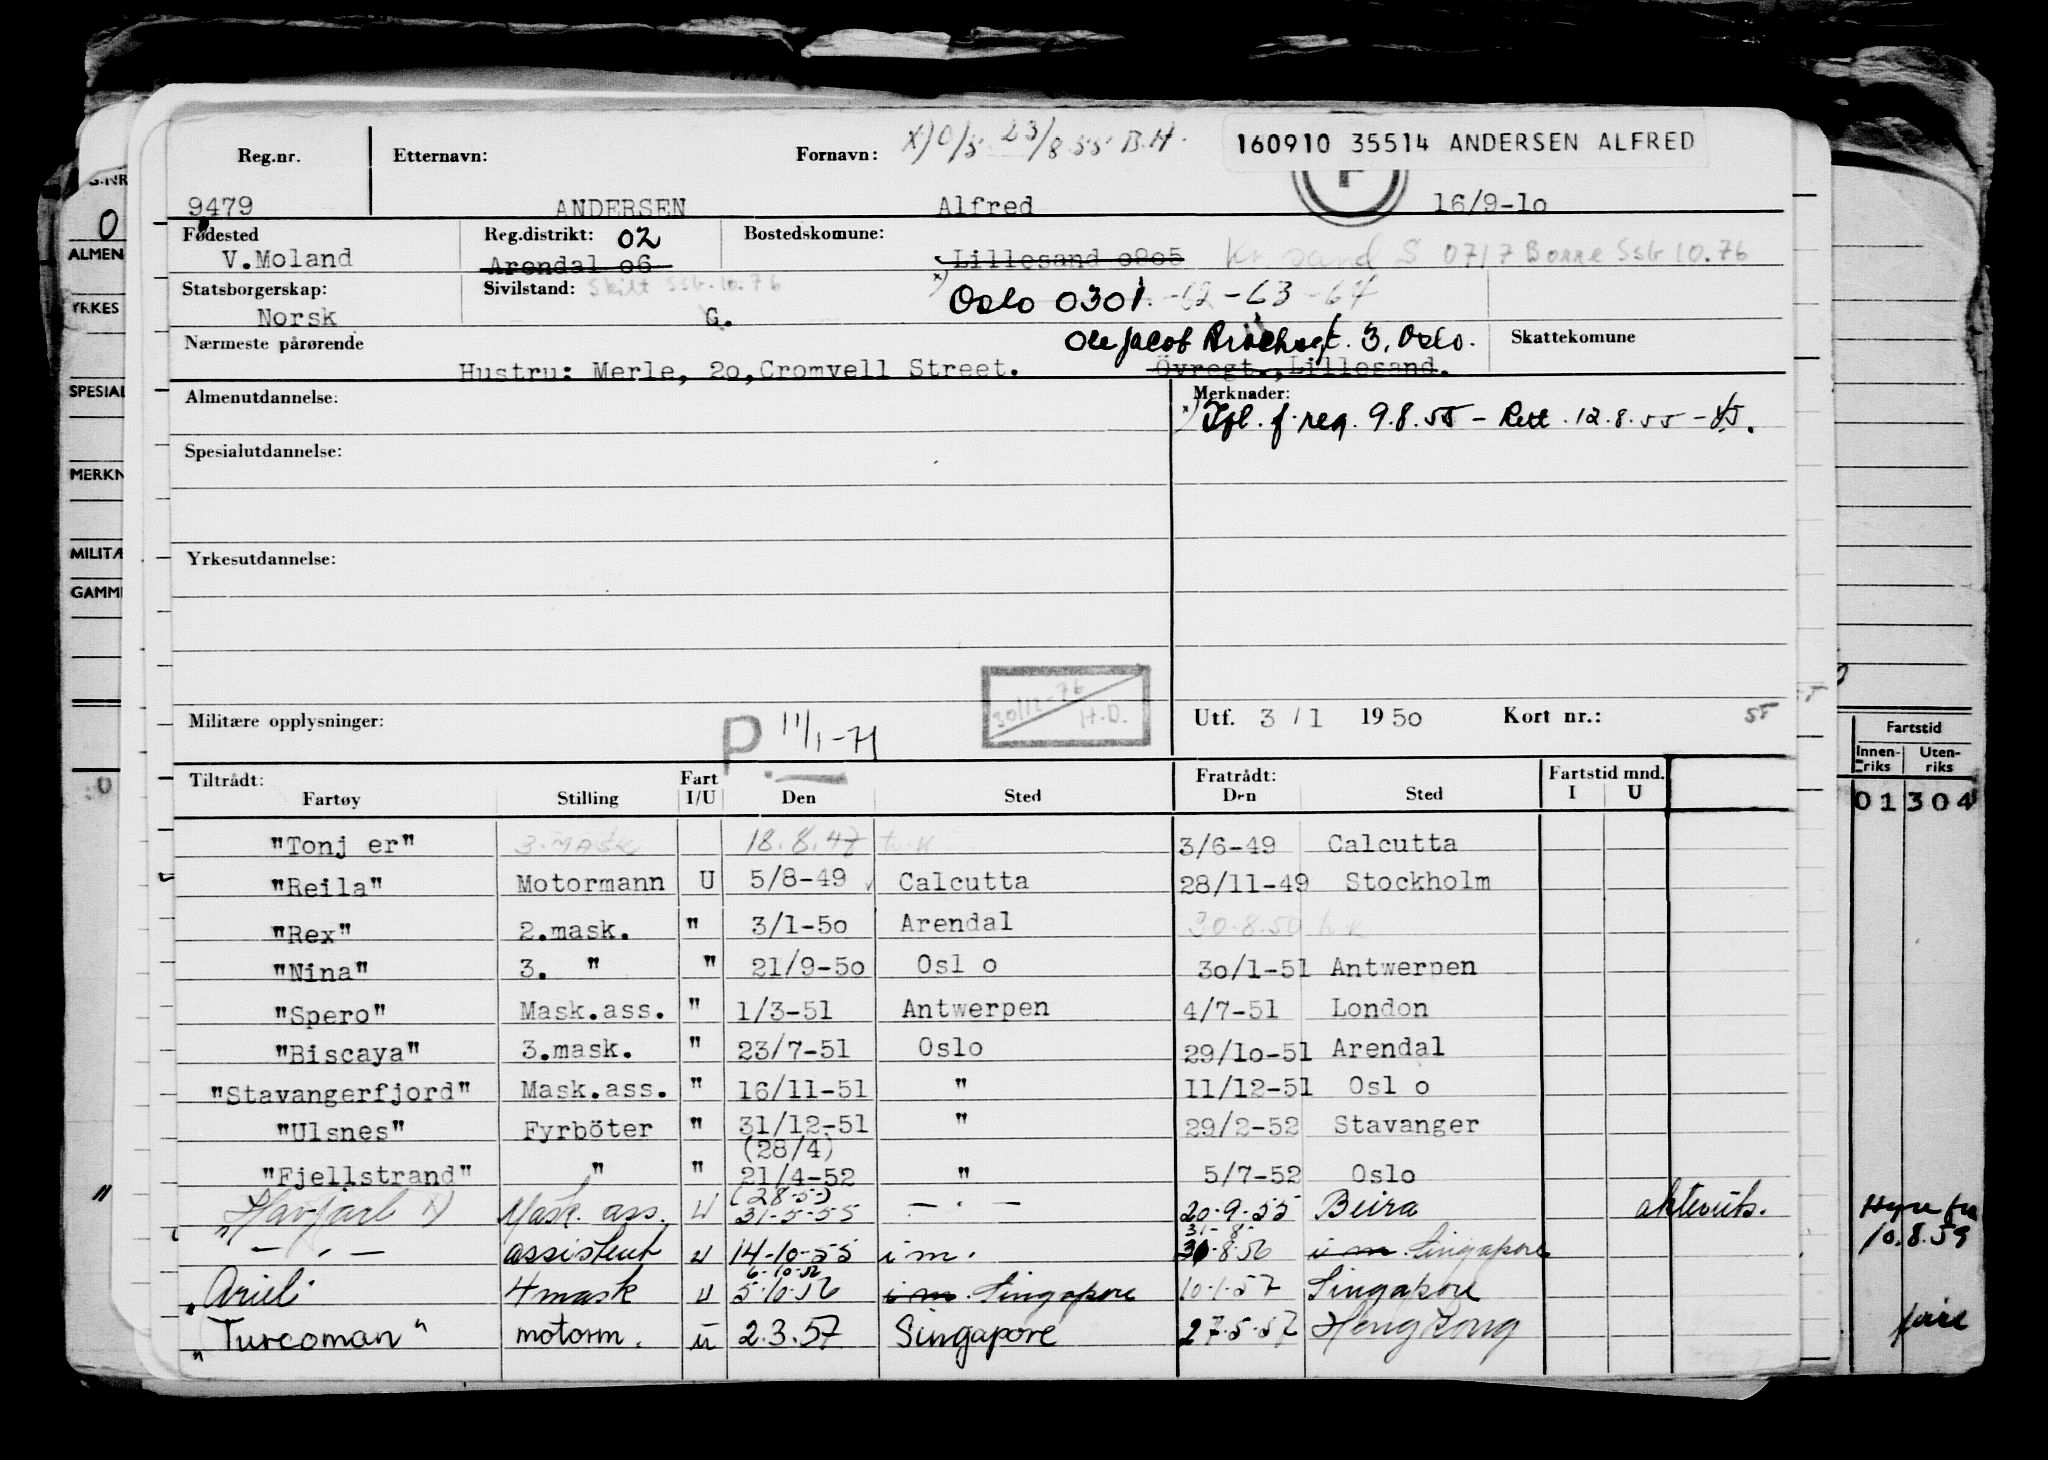 x) O/S 23/8.55 B.H.
160910 35514 ANDERSEN ALFRED
Reg.nr. Etternavn: Fornavn:
9479 ANDERSEN Alfred 16/9-1o
Fødested Reg.distrikt: 02 Bostedskomune:
V.Moland Arendal o6 Lillesand o9o5 Kr sand S 0717 Borre Ssb 10.76
Statsborgerskap: Sivilstand: Skilt Ssb.10.76
Norsk G. x) Oslo 0301 -62-63-64
Nærmeste pårørende Ole Jacob Brochsgt. 3, Oslo. Skattekomune
Hustru: Merle, 2o,Cromvell Street. Övregt.,Lillesand.
Almenutdannelse: Merknader:
x) Tgl. f. reg. 9.8.55 - Rett. 12.8.55
Spesialutdannelse:
Yrkesutdannelse:
30/12-76 H.D.
Militære opplysninger: P 11/1-71 Utf. 3/1 1950 Kort nr.:
Tiltrådt: Fart Fratrådt: Fartstid mnd.
Fartøy Stilling I/U Den Sted Den Sted I U
"Tonj er" 3. mask 18.8.47 3/6-49 Calcutta
"Reila" Motormann U 5/8-49 Calcutta 28/11-49 Stockholm
"Rex" 2.mask. " 3/1-5o Arendal 30.8.50
"Nina" 3. " " 21/9-5o Osl o 3o/1-51 Antwerpen
"Spero" Mask.ass. " 1/3-51 Antwerpen 4/7-51 London
"Biscaya" 3.mask. " 23/7-51 Oslo 29/1o-51 Arendal
"Stavangerfjord" Mask.ass. " 16/11-51 " 11/12-51 Osl o
"Ulsnes" Fyrböter " 31/12-51 " 29/2-52 Stavanger
(28/4)
"Fjellstrand" " " 21/4-52 " 5/7-52 Oslo
(28-5-)
"Havjarl x) Mask. ass. U 31-5-55 - " - 20.9.55 Beira
31- 8-
- " - assistent u 14-10-55 i m. 31.8.56 i m. Singapore
6.10.56
"Ariel" 4 mask u 5.10.56 i m. Singapore 10.1.57 Singapore
"Turcoman" motorm. u 2.3.57 Singapore 27.5.57 Hong Kong
G.NR
0
ALMEN
YRKES
SPESIAL
MERKN
MILITÆ
GAMM
"
Fartstid
Innen-riks Uten-riks
01 304
Hyre fra
10.8.59